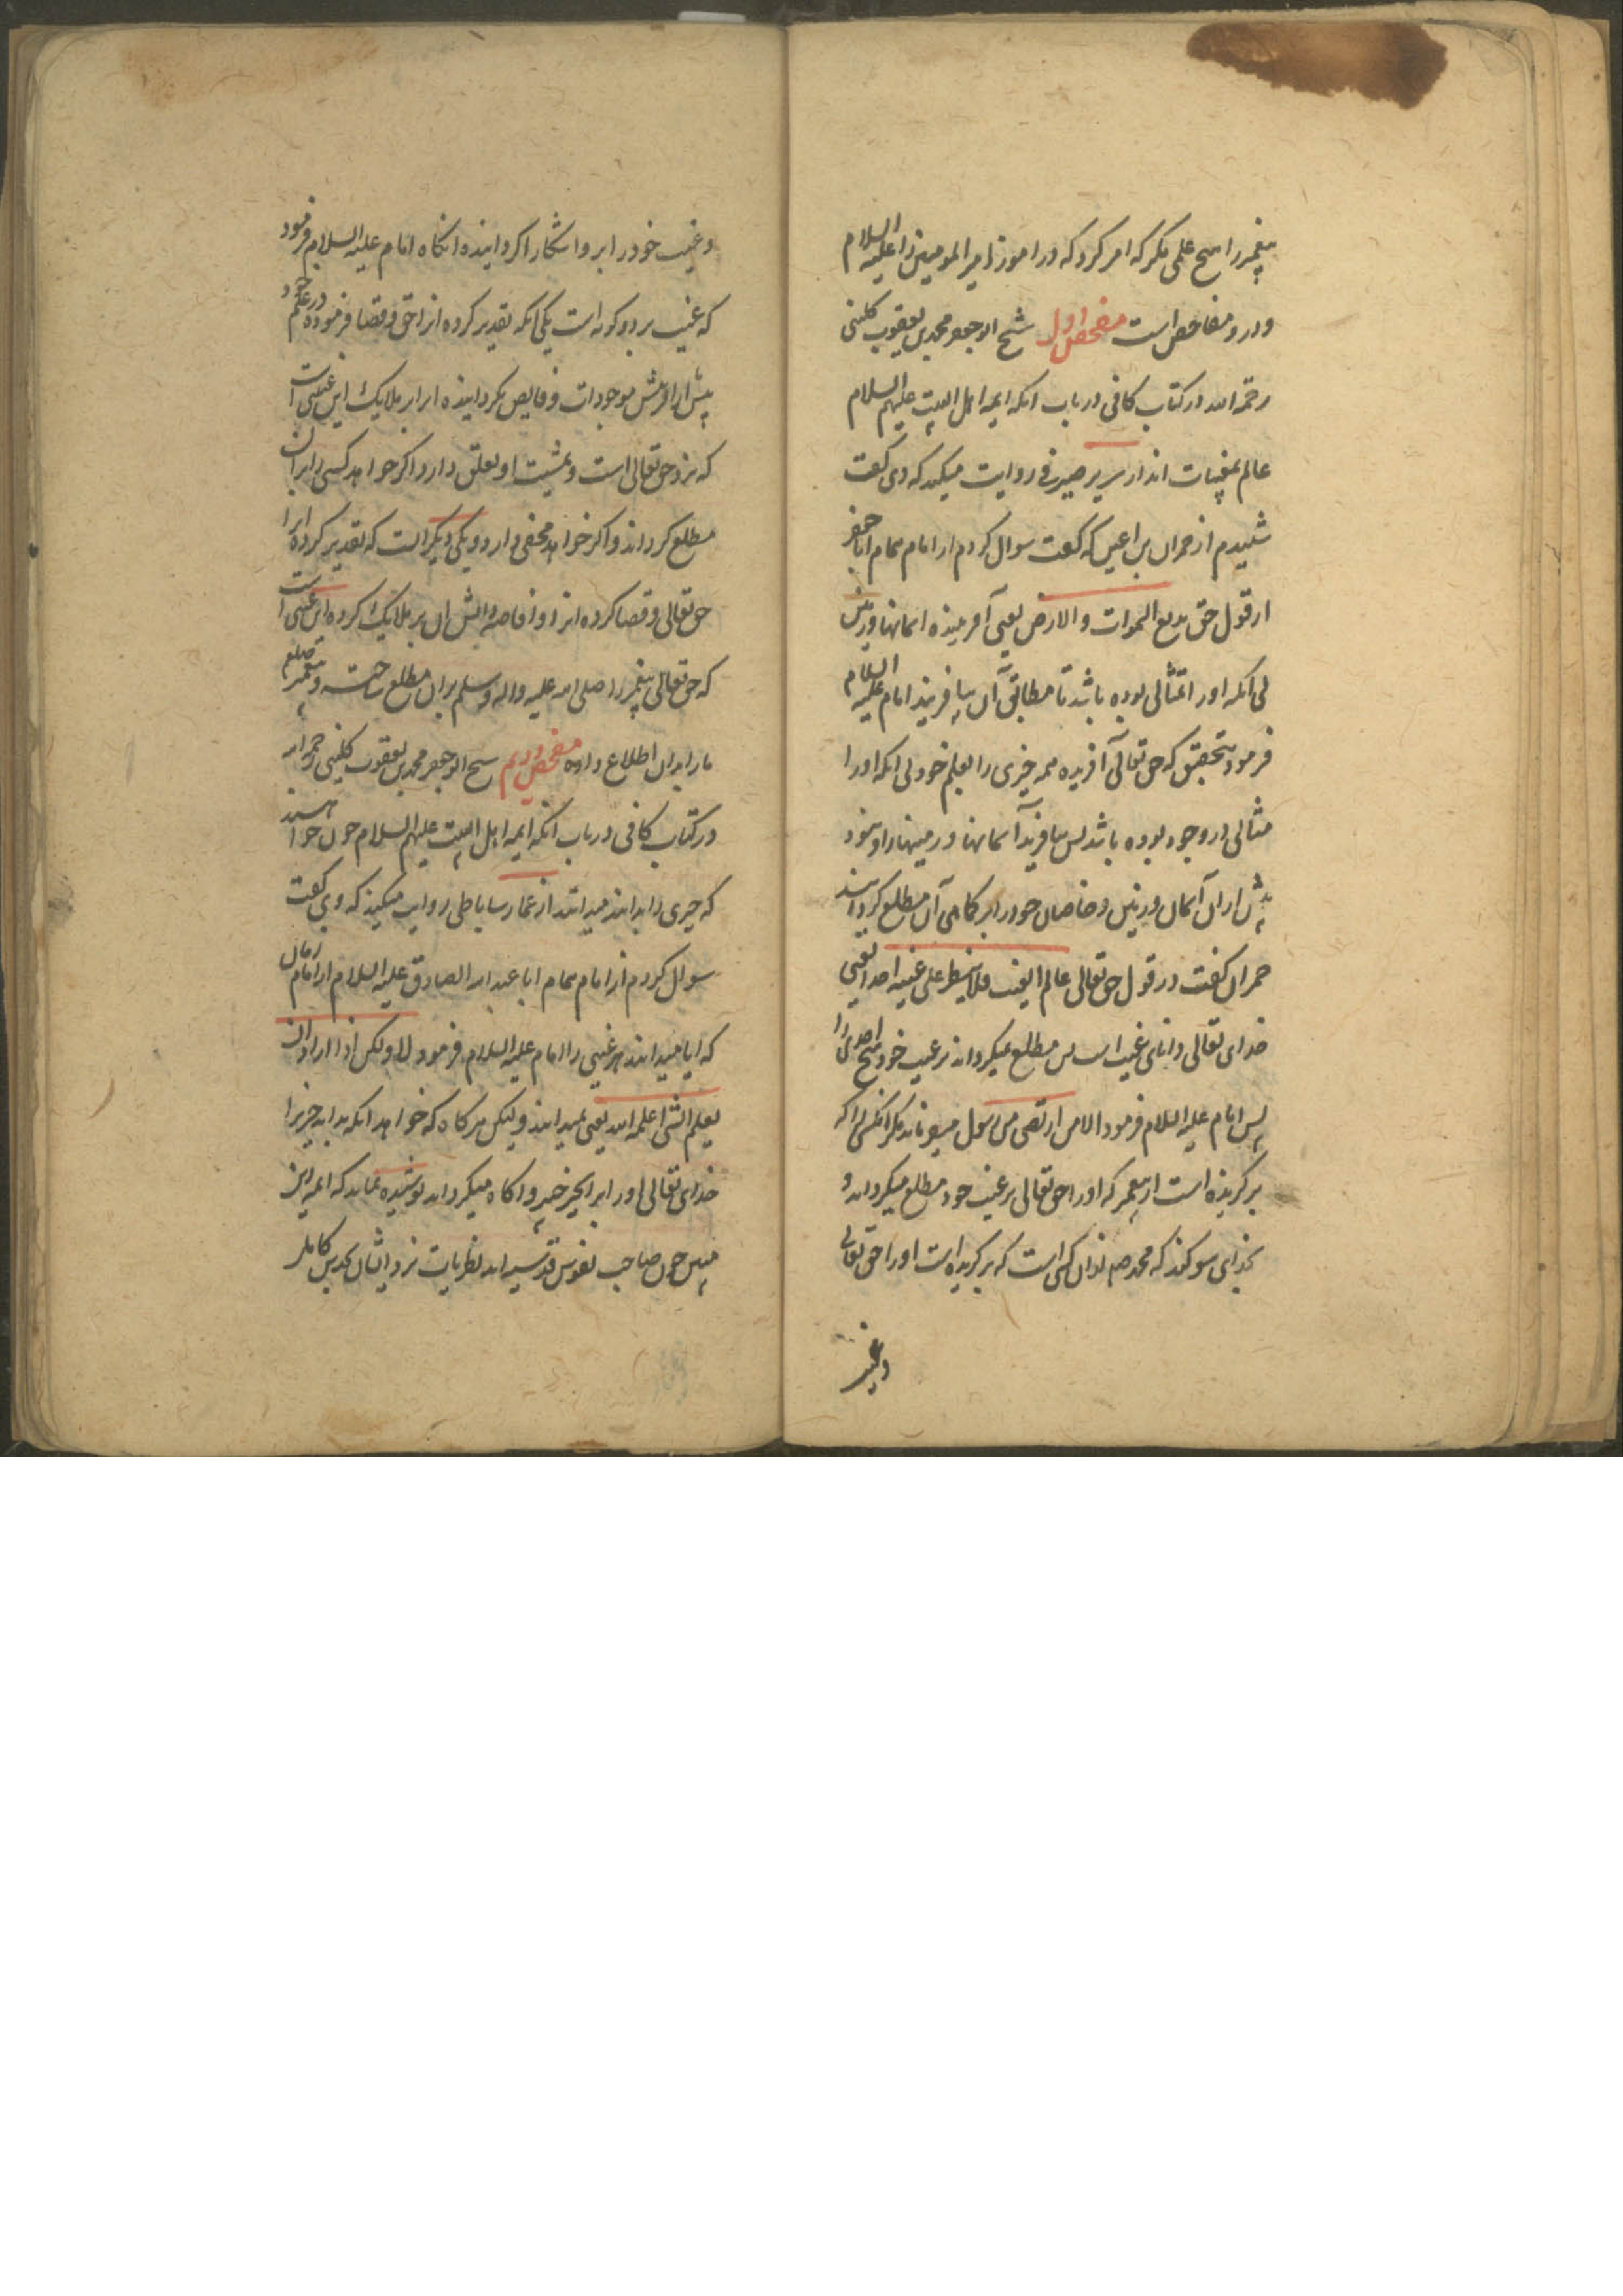 پیغمبر را هیچ علمی مگر که امر کرد که در آموزد امیر المومنین را علیه السلام
و درو مفاحص است مفحص اول شیخ ابو جعفر محمد بن یعقوب کلینی
رحمه الله در کتاب کافی در باب انکه ایمه اهل البیت علیهم السلام
عالم بمغیبات اند از سریر صیرفی روایت میکند که وی گفت
شنیدم از حمران بن اعین که گفت سوال کردم از امام همام ابا جعفر
از قول حق بدیع السموات والارض یعنی آفریننده اسمانها و زمین
بی انکه او را مثالی بوده باشد تا مطابق آن بیافریند امام علیه السلام
فرمود بتحقیق که حق تعالی آفریده همه چیزی را بعلم خود بی انکه او را
مثالی در وجود بوده باشد پس بیافرید آسمانها و زمینها را و نبود
پیش از آن آسمان و زمین و خاصان خود را بر کماهی آن مطلع گردانید
حمران گفت در قول حق تعالی عالم الغیب فلا یظهر علی غیبه احدا یعنی
خدای تعالی دانای غیب است پس مطلع نمیگرداند بر غیب خود هیچ احدی را
پس امام علیه السلام فرمود الا من ارتضی من رسول میفرماید مگر انکسی را که
برگزیده است از پیغمبر که او را حق تعالی بر غیب خود مطلع میگرداند و
بخدای سوکند که محمد صم ازان کسی است که برگزیده است او را حق تعالی
و غیب
و غیب خود را برو اشکارا کردانیده انکاه امام علیه السلام فرمود
که غیب بر دو کونه است یکی انکه تقدیر کرده انرا حق و قضا فرموده در علم خود
پیش از آفرینش موجودات و فایض نکردانیده انرا بر ملایک این غیبی است
که نزد حق تعالی است و بمشیت او تعلق دارد اگر خواهد کسی را بران
مطلع کرداند و اکر خواهد مخفی دارد و یکی دیکر انست که تقدیر کرده انرا
حق تعالی و قضا کرده انرا و افاضه دانش ان بر ملایک کرده این غیبی است
که حق تعالی پیغمبر را صلی الله علیه واله وسلم بران مطلع ساخته و پیغمبر صلعم
ما را بدان اطلاع داده مفحص دویم شیخ ابو جعفر محمد بن یعقوب کلینی رحمه الله
در کتاب کافی در باب انکه ایمه اهل البیت علیهم السلام چون خواهند
که چیزی را بدانند میدانند از عمار ساباطی روایت میکند که وی گفت
سوال کردم از امام همام ابا عبد الله الصادق علیه السلام از امام زمان
که ایا میدانند هر غیبی را امام علیه السلام فرمود لا ولکن اذا اراد ان
یعلم الشی اعلمه الله یعنی نمیدانند ولیکن هرکاه که خواهد انکه بداند چیزی را
خدای تعالی او را بران چیز خبیر و اکاه میکرداند پوشیده نماند که ایمه دین
مبین چون صاحب نفوس قدسیه اند نظریات نزد ایشان بحدس کامل